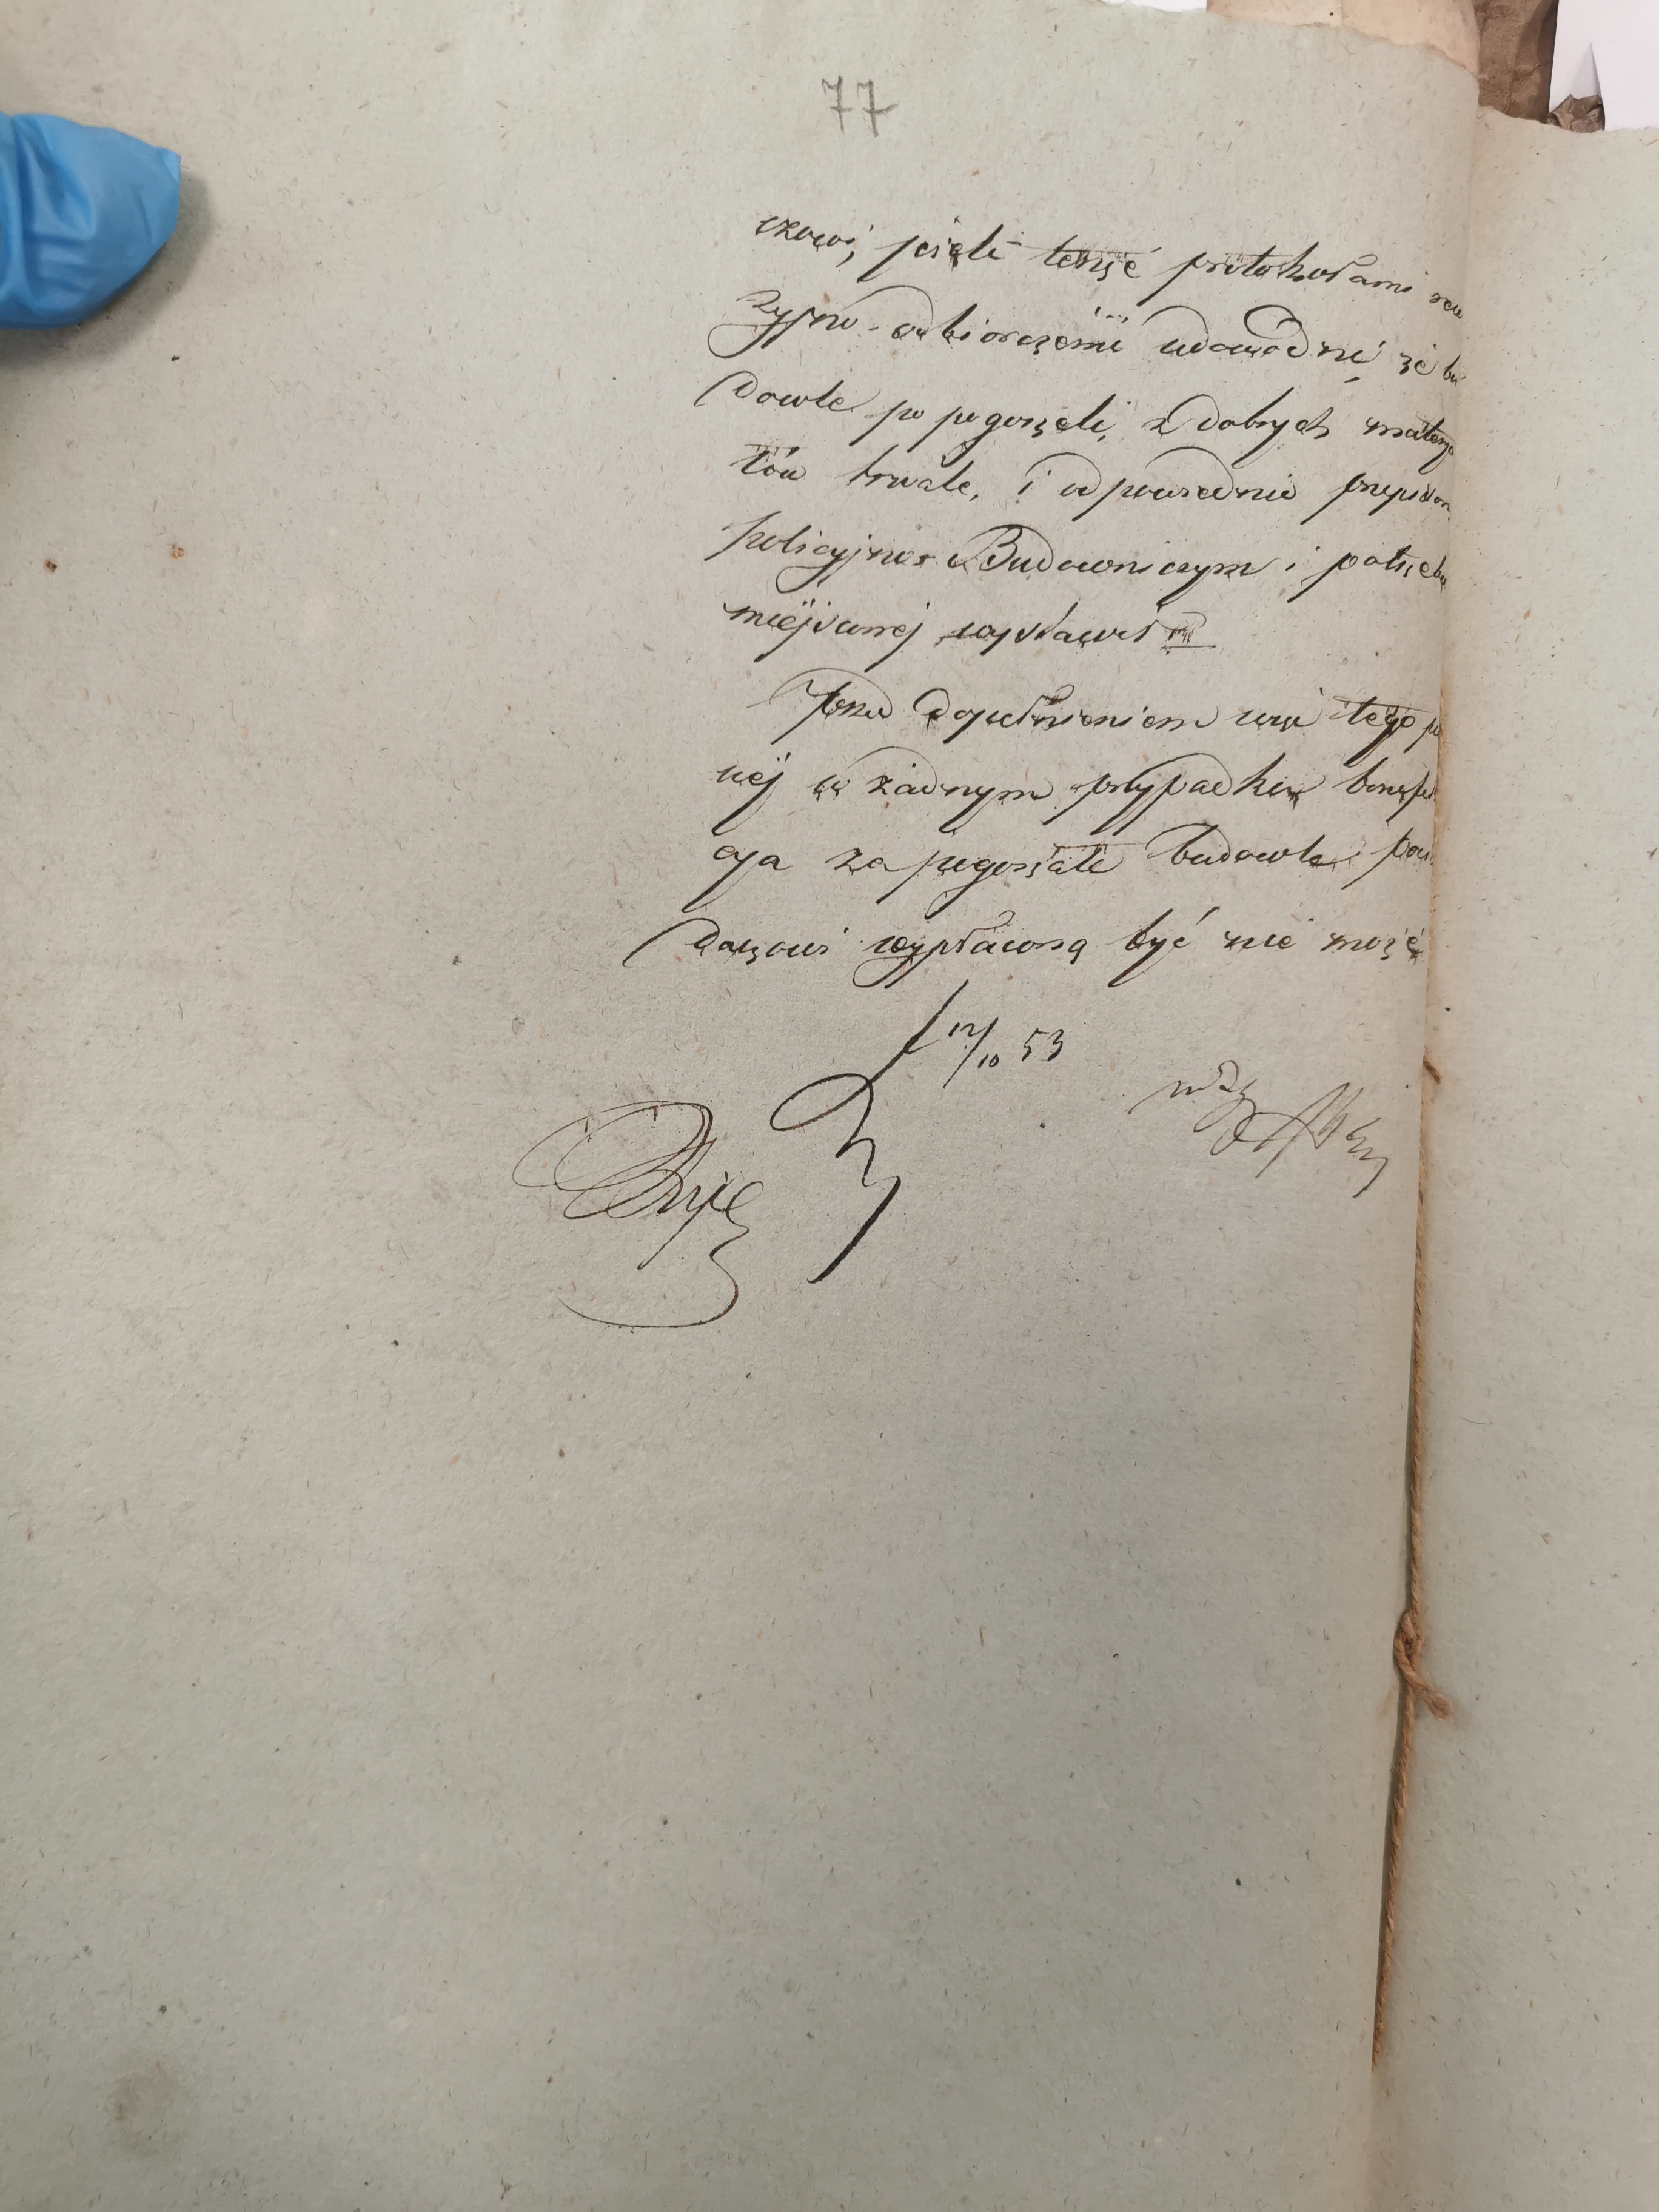 77
skowi, jeżeli tenże protokołami rew
zyjno-odbiorczemi udowodni że bu
dowle po pogorzeli, z dobrych materja
łów trwale, i odpowiednio przepisom
policyjno-Budowniczym i potrzebie
miejscowej wystawił
Przed dopełnieniem warunku tego
nej w żadnym przypadku bonifi
cja za pogorzałe budowle pos
daczowi wypłaconą być nie może
12/10 53